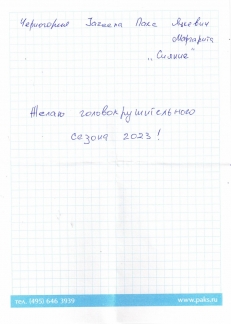 Черногория
Маргарита
"Сияние"
Желаю головокрушительного
сезона 2023!
тел. (495) 646 3939 www.puks.ru